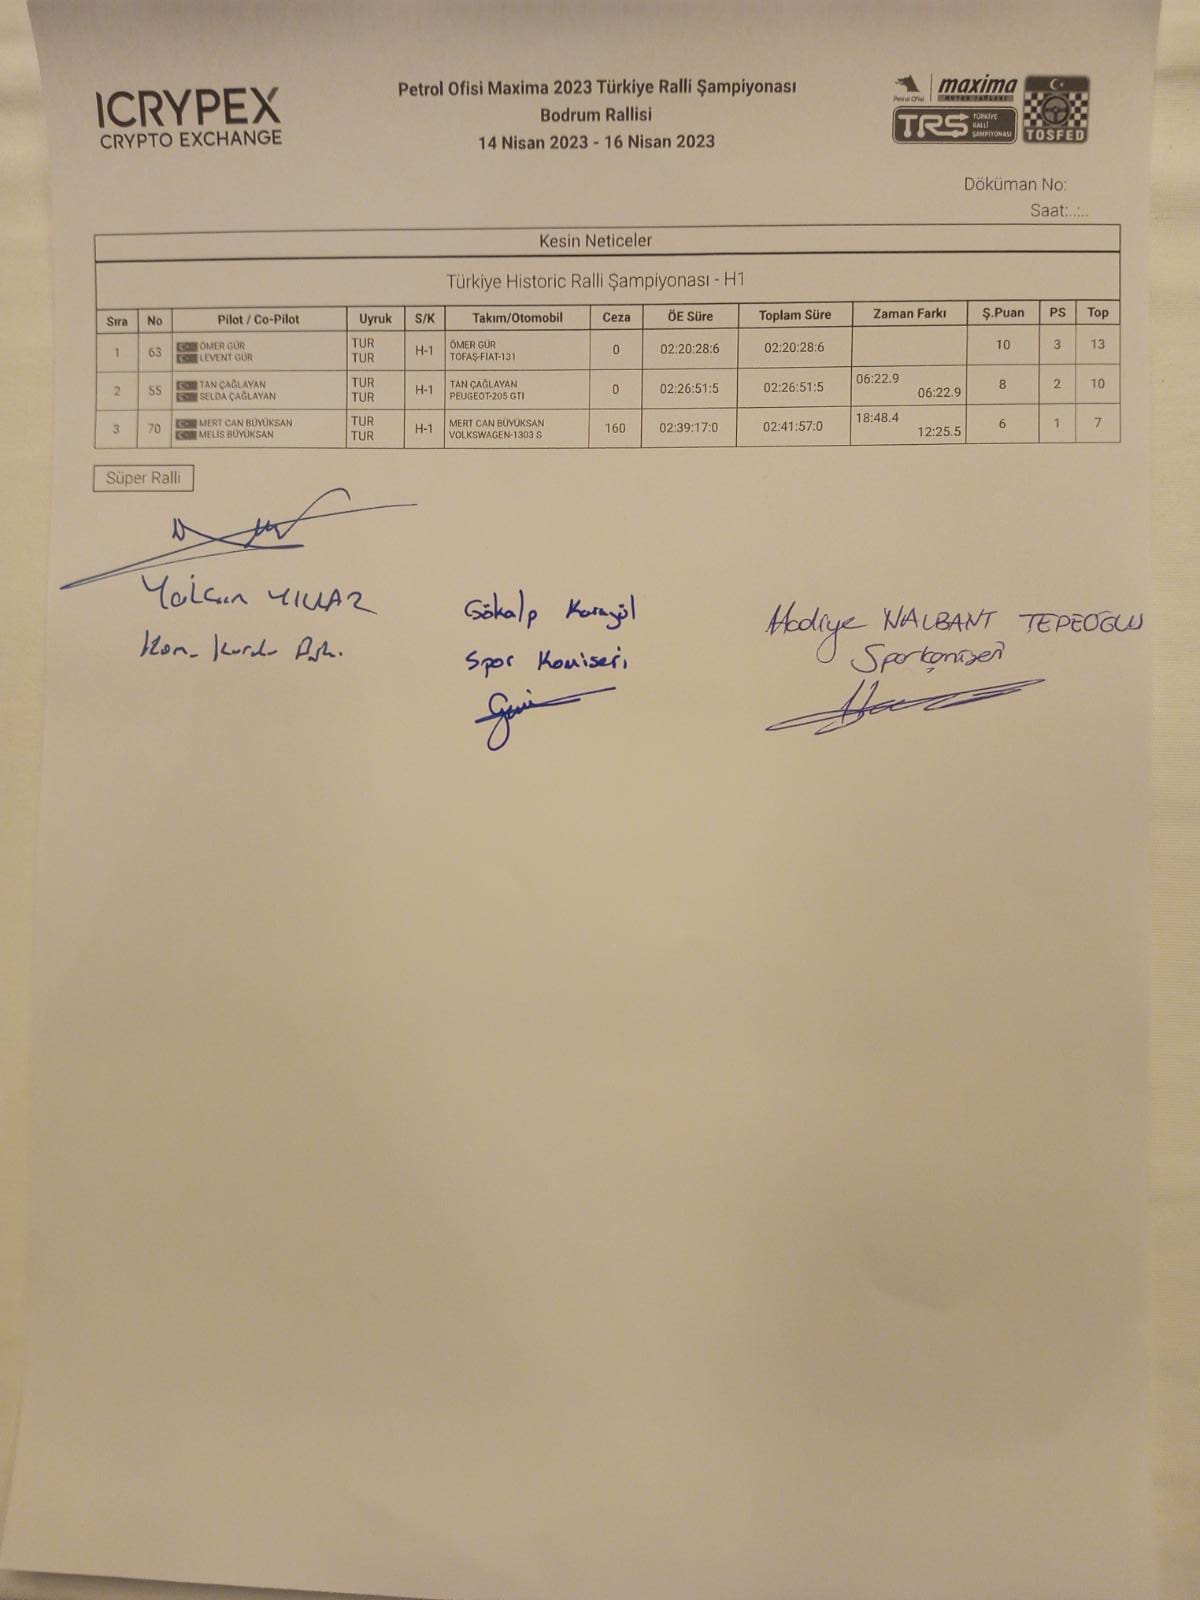 ICRYPEX
CRYPTO EXCHANGE
Petrol Ofisi Maxima 2023 Türkiye Ralli Şampiyonası
Bodrum Rallisi
14 Nisan 2023 - 16 Nisan 2023
Petrol Ofisi
maxima
MOTOR YAĞLARI
TRS TÜRKİYE RALLİ ŞAMPİYONASI
TOSFED
Döküman No:
Saat:..:..
Kesin Neticeler
Türkiye Historic Ralli Şampiyonası - H1
Sıra No Pilot / Co-Pilot Uyruk S/K Takım/Otomobil Ceza ÖE Süre Toplam Süre Zaman Farkı Ş.Puan PS Top
1 63 ÖMER GÜR TUR H-1 ÖMER GÜR 0 02:20:28:6 02:20:28:6 10 3 13
LEVENT GÜR TUR TOFAŞ-FIAT-131
2 55 TAN ÇAĞLAYAN TUR H-1 TAN ÇAĞLAYAN 0 02:26:51:5 02:26:51:5 06:22.9 8 2 10
SELDA ÇAĞLAYAN TUR PEUGEOT-205 GTI 06:22.9
3 70 MERT CAN BÜYÜKSAN TUR H-1 MERT CAN BÜYÜKSAN 160 02:39:17:0 02:41:57:0 18:48.4 6 1 7
MELİS BÜYÜKSAN TUR VOLKSWAGEN-1303 S 12:25.5
Süper Ralli
Yalçın YILMAZ
Kom. Kurulu Bşk.
Gökalp Karagül
Spor Komiseri
Hediye NALBANT TEPEOĞLU
Spor komiseri